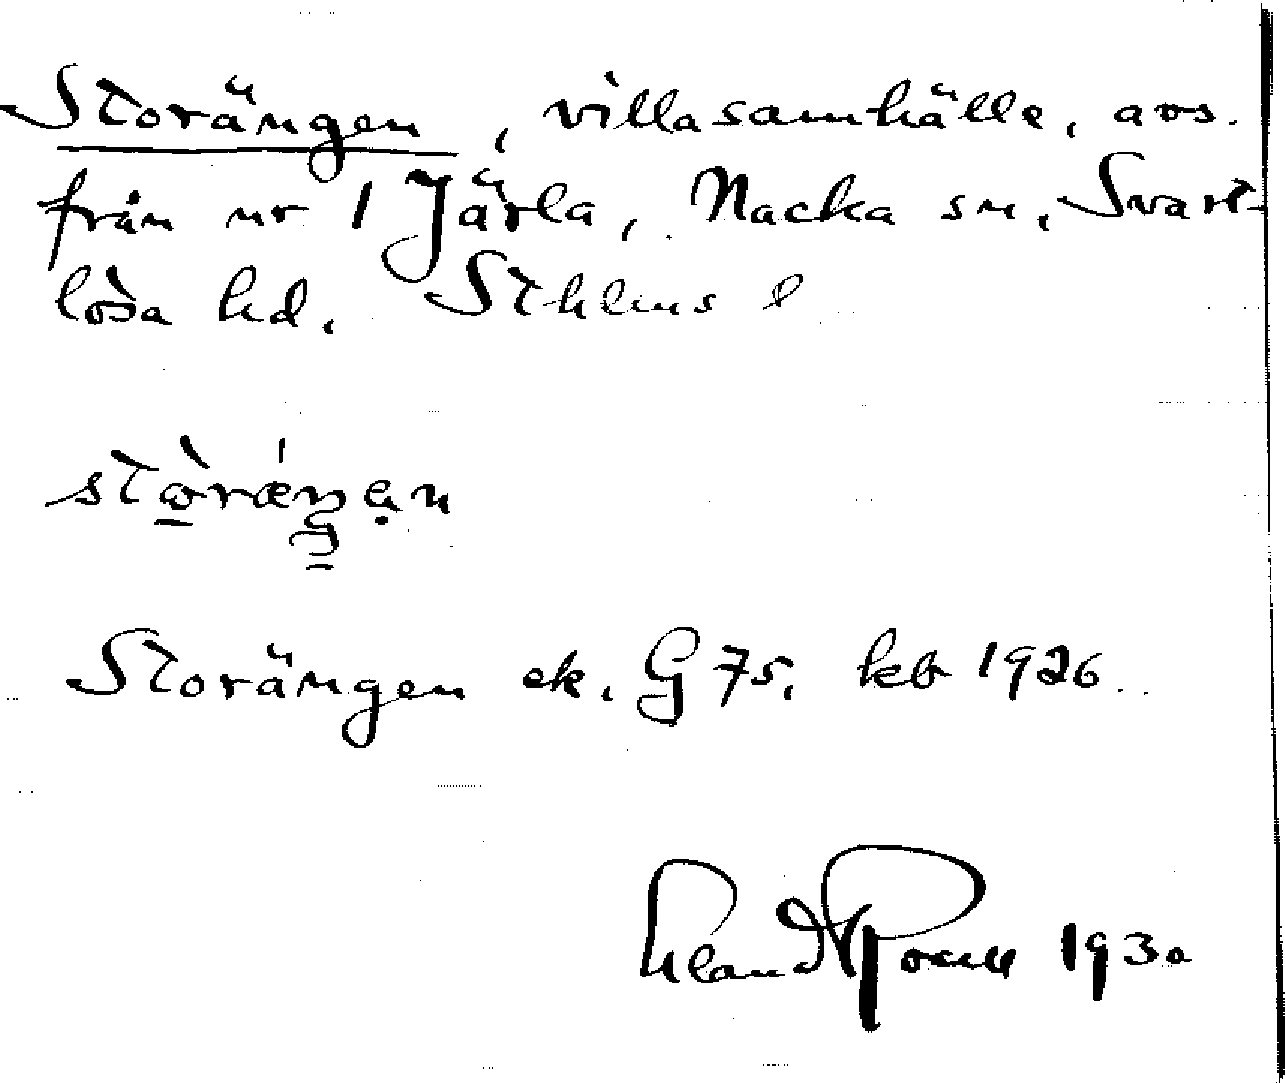 Storängen, villasamhälle, avs.
från nr 1 Järla, Nacka sn, Svart-
lösa hd. Sthlms l
Storängen ek. G 75. kb 1926
1930